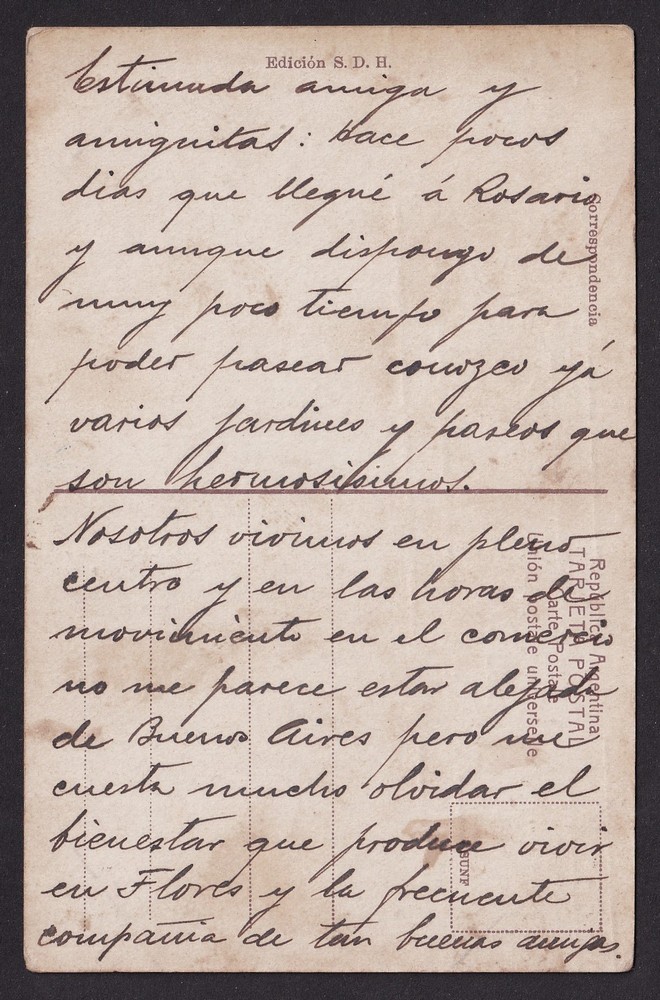 Edición S. D. H.
Estimada amiga y
amiguitas: hace pocos
dias que llegué á Rosario
y aunque dispongo de
muy poco tiempo para
poder pasear conozco yá
varios jardines y paseos que
son hermosisimos.
Nosotros vivimos en pleno
centro y en las horas de
movimiento en el comercio
no me parece estar alejada
de Buenos Aires pero me
cuesta mucho olvidar el
bienestar que produce vivir
en Flores y la frecuente
compañia de tan buenas amigas.
Correspondencia
República Argentina
TARJETA POSTAL
Carte Postale
Unión Postale universelle
BUNF